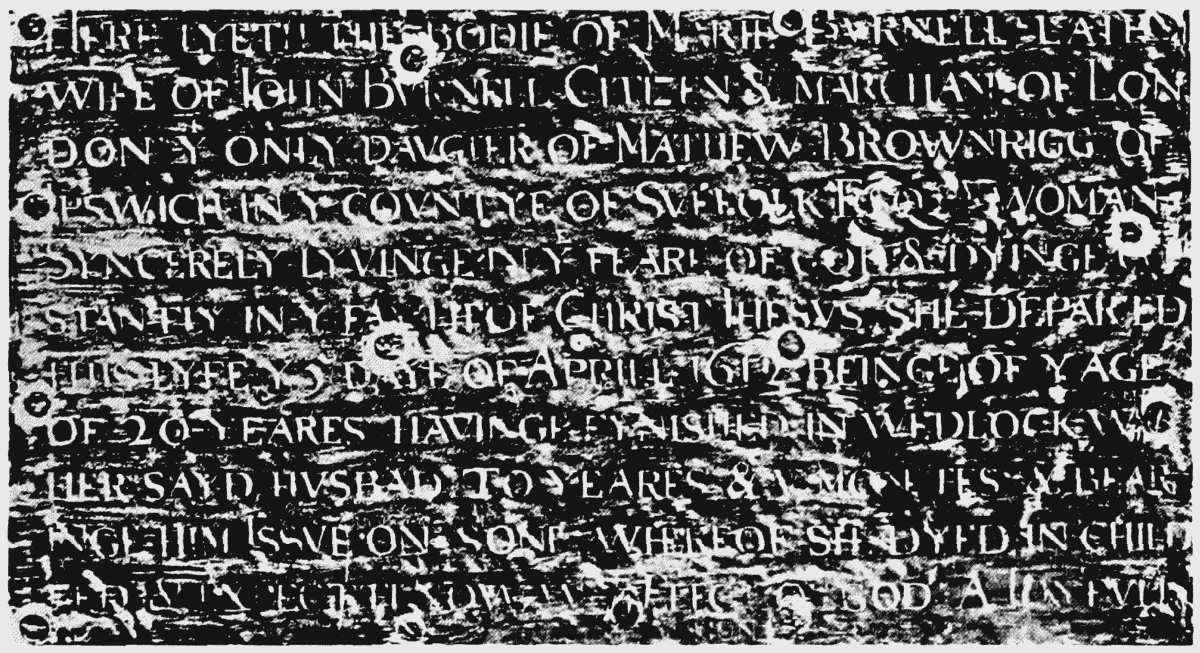 HERE LYETH THE BODIE OF MARIE BVRNELL LATE
WIFE OF IOHN BVRNELL CITIZEN & MARCHANT OF LON
DON Y ONLY DAVGTER OF MATHEW BROWNRIGG OF
IPSWICH IN Y COVNTYE OF SVFFOLK WOMAN
SYNCERELY LYVINGE IN Y FEARE OF GOD & DYINGE
STANTLY IN Y FAYTH OF CHRIST IHESVS SHE DEPARTED
THIS LYFE Y 5 DAYE OF APRILL 1612 BEINGE OF Y AGE
OF 20 YEARES HAVINGE FYNISHED IN WEDLOCK W
HER SAYD HVSBAD TO YEARES & V MONTHES & BEAR
INGE HIM ISSVE ON SONE WHEREOF SHE DYED IN CHILD
GOD A